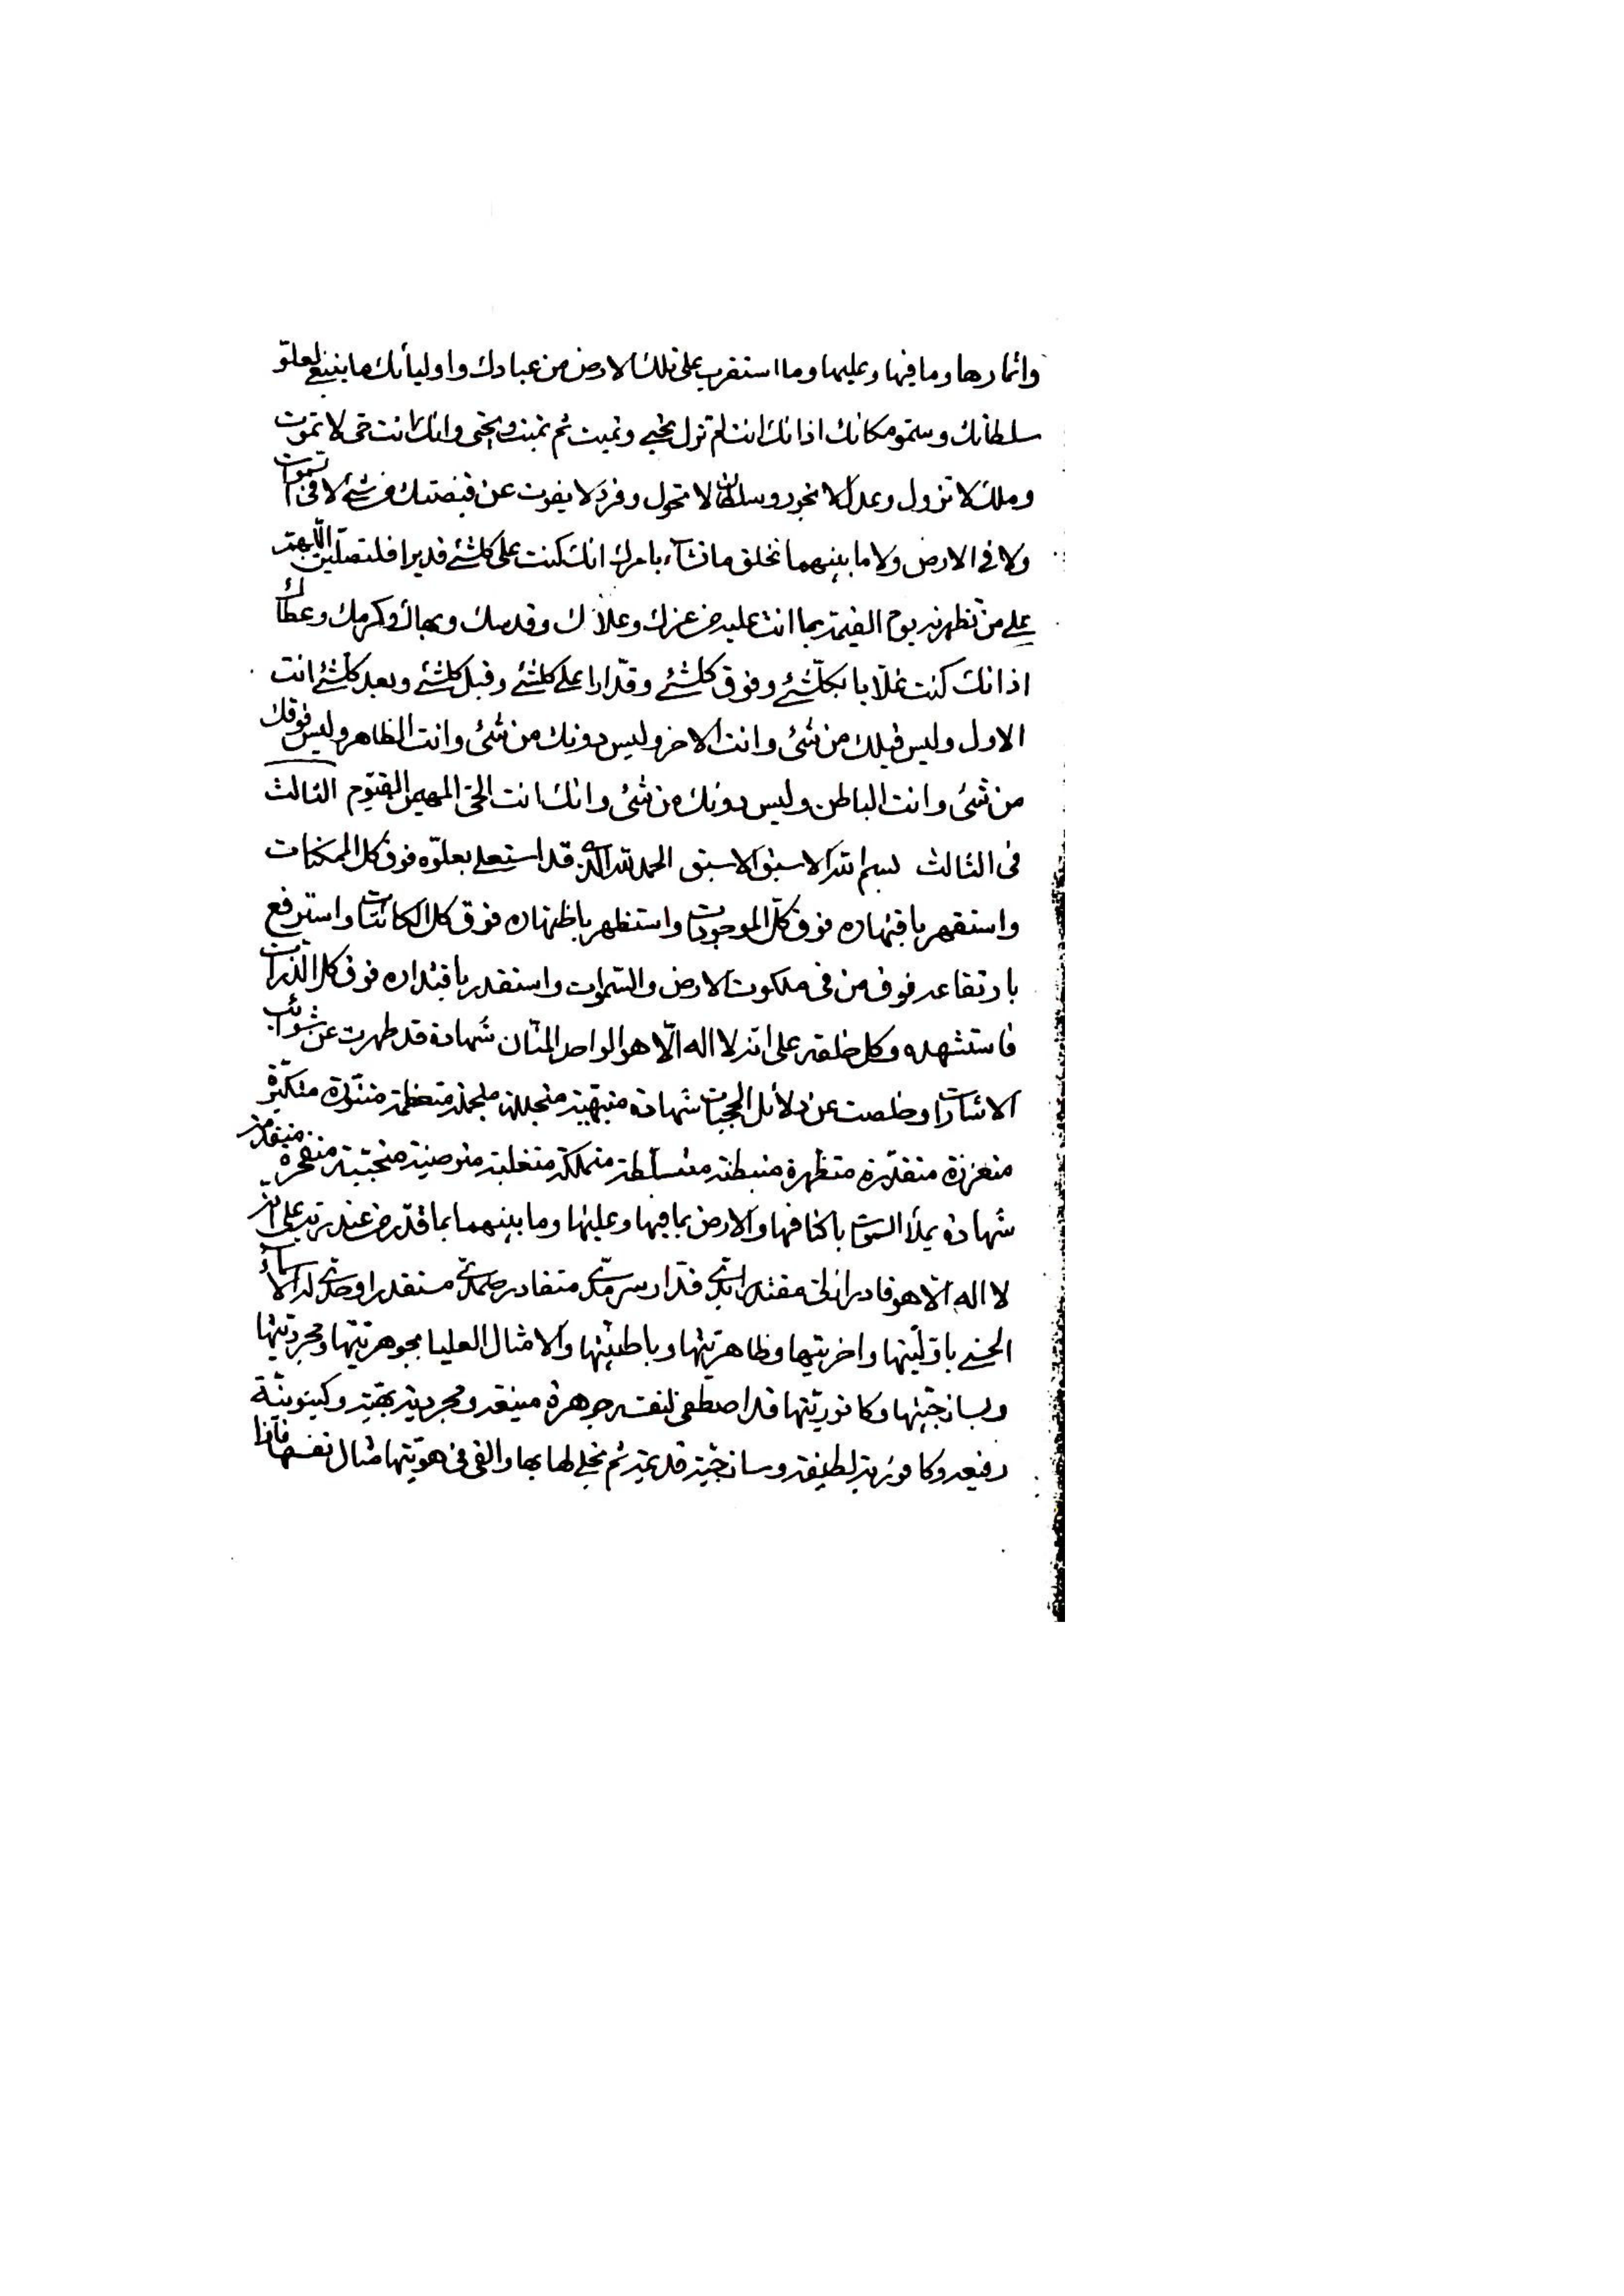 واثمارها وما فيها وعليها وما استقرب على تلك الارض من عبادك واوليائك ما ينبغي لعلوّ
سلطانك وسموّ مكانك اذ انك انت لم تزل تحيي وتميت ثم تميت وتحيى وانك انت حى لا تموت
وملك لا تزول وعدل لا تجور وسلطان لا تحول وفرد لا يفوت عن قبضتك من شئ لا فى السموات
ولا فى الارض ولا ما بينهما تخلق ما تشآء بامرك انك كنت على كلشئ قديرا فلتصلين اللهم
على من تظهرنه يوم القيمة بما انت عليه من عزك وعلائك وقدسك وبهائك وكرمك وعطائك
اذ انك كنت غلّابا بكلّشئ وفوق كلشئ وقدّارا على كلشئ وقبل كلشئ وبعد كلشئ انت
الاول وليس قبلك من شئ وانت الاخر وليس دونك من شئ وانت الظاهر وليس فوقك
من شئ وانت الباطن وليس دونك من شئ وانك انت الحى المهيمن القيّوم الثالث
فى الثالث بسم الله الاسبق الاسبق الحمد لله الذى قد استعلى بعلوّه فوق كل الممكنات
واستقهر باقتهاره فوق كلّ الموجودات واستظهر باظهاره فوق كل الكائنات واسترفع
بارتفاعه فوق من فى ملكوت الارض والسّموات واستقدر باقتداره فوق كل الذرات
فاستشهده وكل خلقه على انه لا اله الّا هو الواحد المنّان شهادة قد طهرت عن شوائب
الاشارات وخلصت عن دلائل الحجبات شهادة متبهية متجللة متجملة متعظمة متنوّرة متكبّرة
متعززة متقدّرة متظهرة متبطنة متسلطة متملكة متغلبة مترضية متحببة مفتخرة متقدمة
شهادة يملأ السموات باكنافها والارض بما فيها وعليها وما بينهما بما قدّر من عند ربه على انه
لا اله الّا هو قادر ازلى مقتدر ابدى قدّار سرمدى متقادر صمدى مستقدر اوحدى له الاسماء
الحسنى باوّليّتها واخريتها وظاهريّتها وباطنيّتها والامثال العليا بجوهريّتها ومجرديّتها
وبساذجيّتها وكافوريّتها قد اصطفى لنفسه جوهرة منيعة ومجردية بهيّة وكينونيّة
رفيعة وكافورية لطيفة وساذجيّة قديمة ثم تجلى لها بها والقى فى هويّتها مثال نفسها فاذا